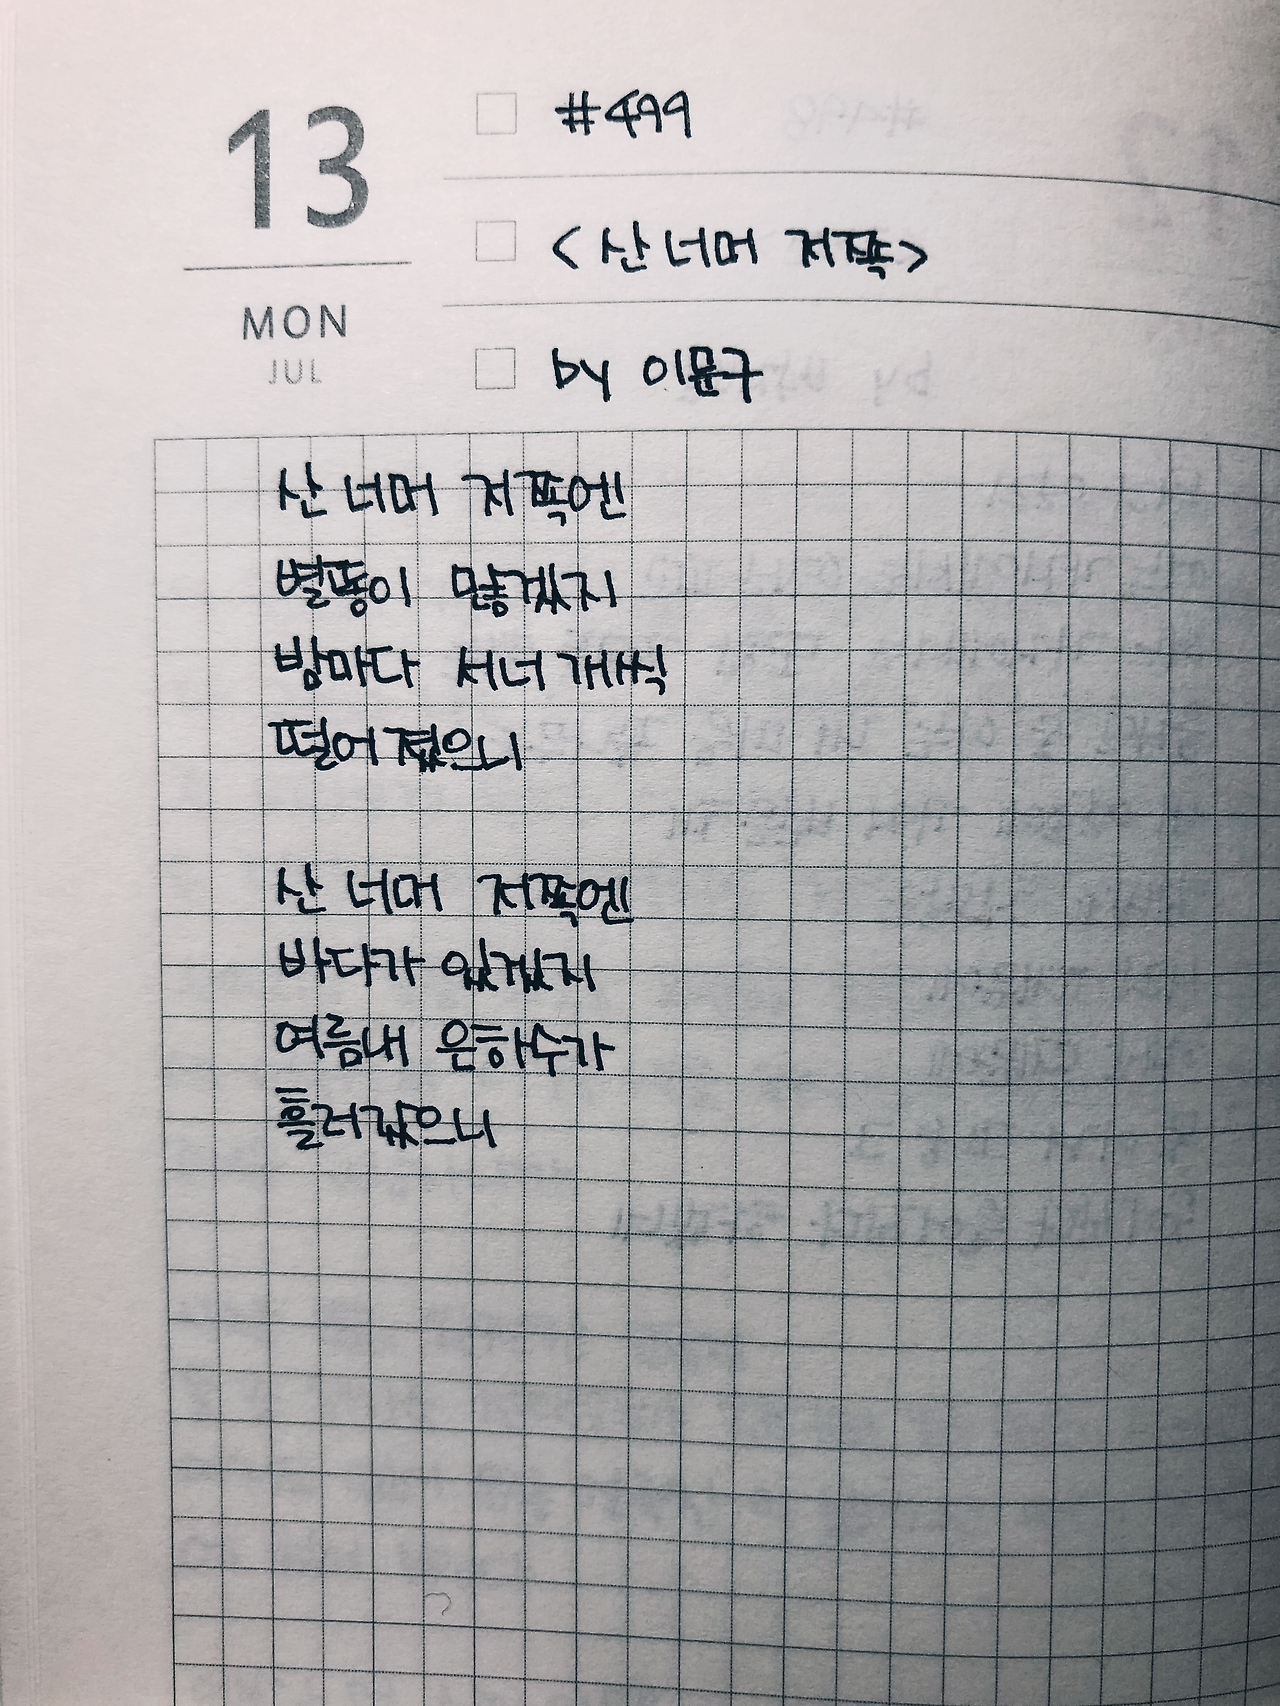 13
MON
JUL
#499
<산 너머 저쪽>
by 이문구
산 너머 저쪽엔
별똥이 많겠지
밤마다 서너 개씩
떨어졌으니
산 너머 저쪽엔
바다가 있겠지
여름내 은하수가
흘러갔으니